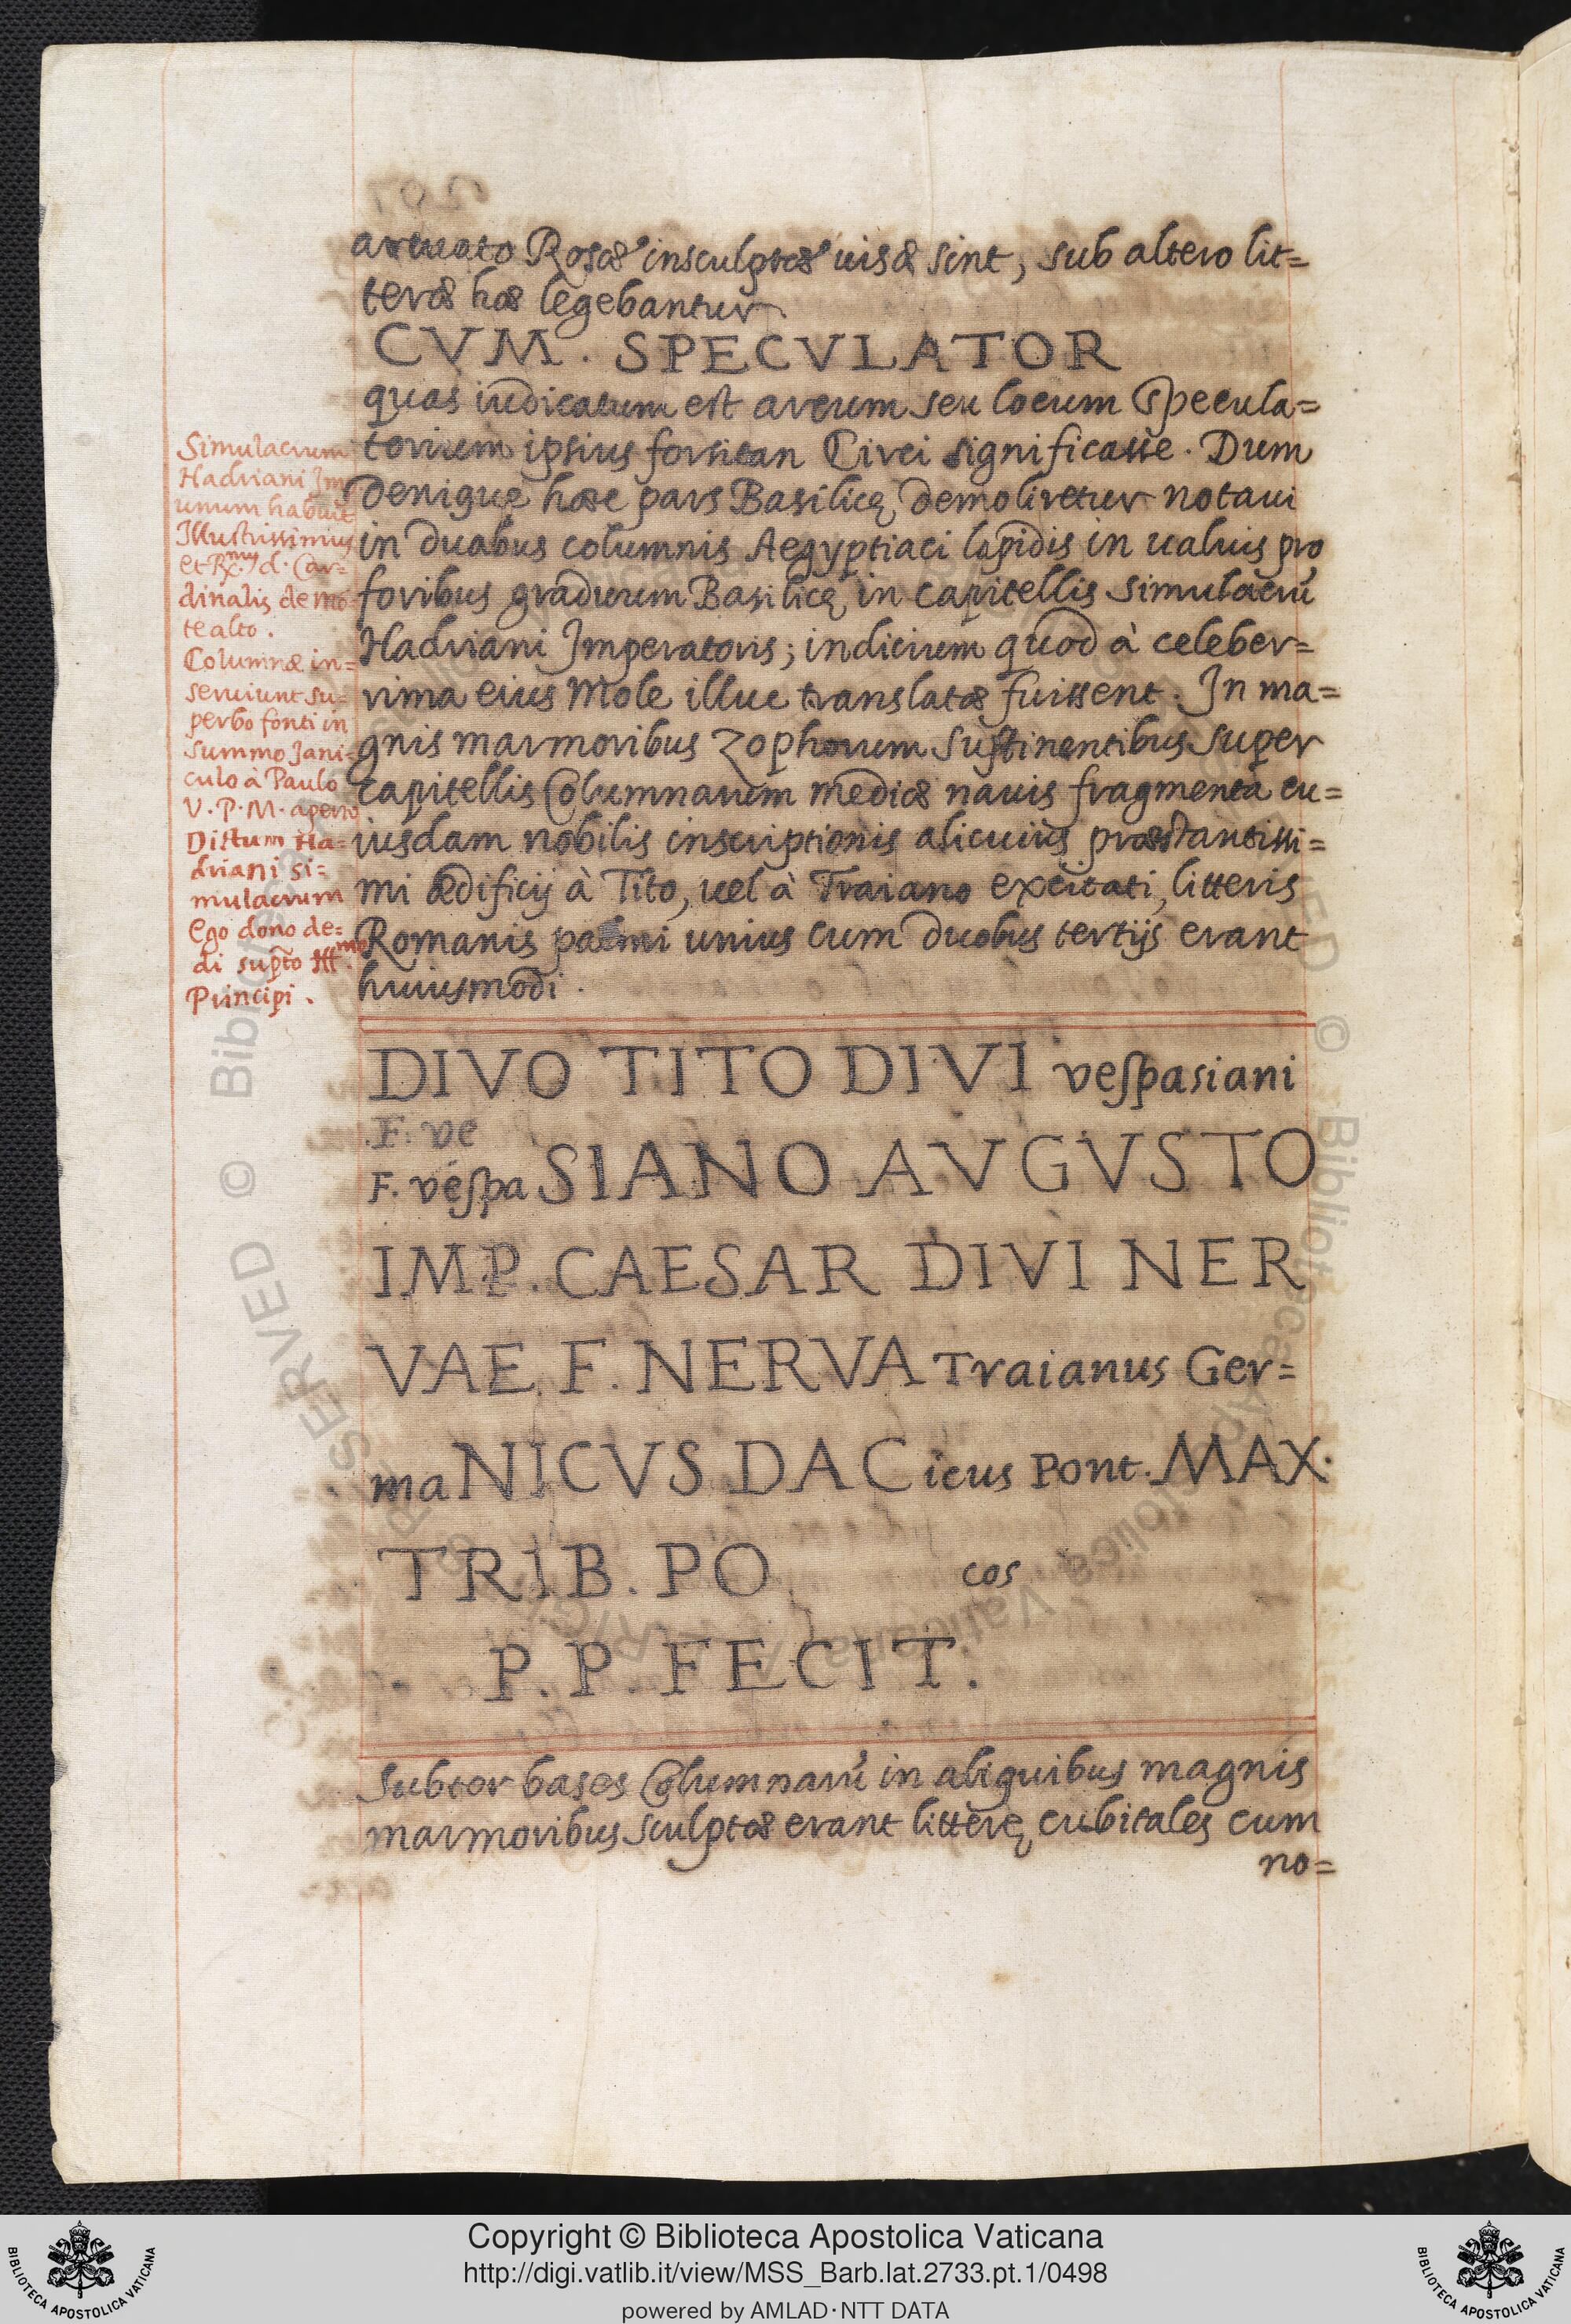 arcuato Rosæ insculptæ uisæ sint, sub altero lit=
teræ hæ legebantur
CVM . SPECVLATOR
quas iudicatum est arcum seu locum specula=
torium ipsius forsitan Circi significasse. Dum
denique hæc pars Basilicę demoliretur notaui
in duabus columnis Aegyptiaci lapidis in ualuis pro
foribus graduum Basilicę in capitellis simulacrũ
Hadriani Imperatoris; indicium quod à celeber=
rima eius Mole illuc translatæ fuissent. In ma=
gnis marmoribus Zophorum sustinentibus super
capitellis Columnarum mediæ nauis fragmenta cu=
iusdam nobilis inscriptionis alicuius præstantissi=
mi ædificij à Tito, uel à Traiano excitati, litteris
Romanis palmi unius cum duobus tertijs erant
huiusmodi .
Simulacrum
Hadriani Imp.
unum habuit
Illustrissimus
et R.mus d. Car=
dinalis de mõ
te alto.
Columnæ in=
seruiunt su=
perbo fonti in
summo Jani=
culo à Paulo
V. P. M. aperto
Dictum Ha=
driani si=
mulacrum
Ego dono de=
di supto Ill.mo
Principi .
DIVO TITO DIVI vespasiani
.F. ve
F. vespa SIANO AVGVSTO
IMP. CAESAR DIVI NER
VAE F. NERVA Traianus Ger=
ma NICVS DAC icus Pont. MAX.
TRIB. PO cos
P. P. FECIT.
Subter bases Columnarũ in aliquibus magnis
marmoribus sculptæ erant litterę cubitales cum
no=
Copyright © Biblioteca Apostolica Vaticana
http://digi.vatlib.it/view/MSS_Barb.lat.2733.pt.1/0498
powered by AMLAD·NTT DATA
BIBLIOTECA APOSTOLICA VATICANA
BIBLIOTECA APOSTOLICA VATICANA